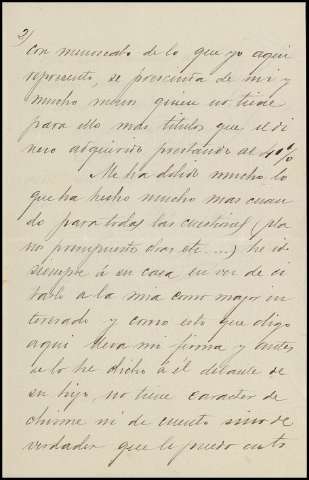 2)
con menoscabo de lo que yo aqui
represento, se prescinda de mi y
mucho menos quien no tiene
para ello mas titulos que el di
nero adquirido prestando al 40%
Me ha dolido mucho lo
que ha hecho mucho mas cuan
do para todas las cuestiones (pla
no presupuesto obras etc.....) he id.
siempre á su casa en vez de ci
tarlo a la mia como mayor in
teresado y como esto que digo
aqui lleva mi firma y antes
se lo he dicho á él delante de
su hijo, no tiene caracter de
chisme ni de cuento sino de
verdades que le puedo